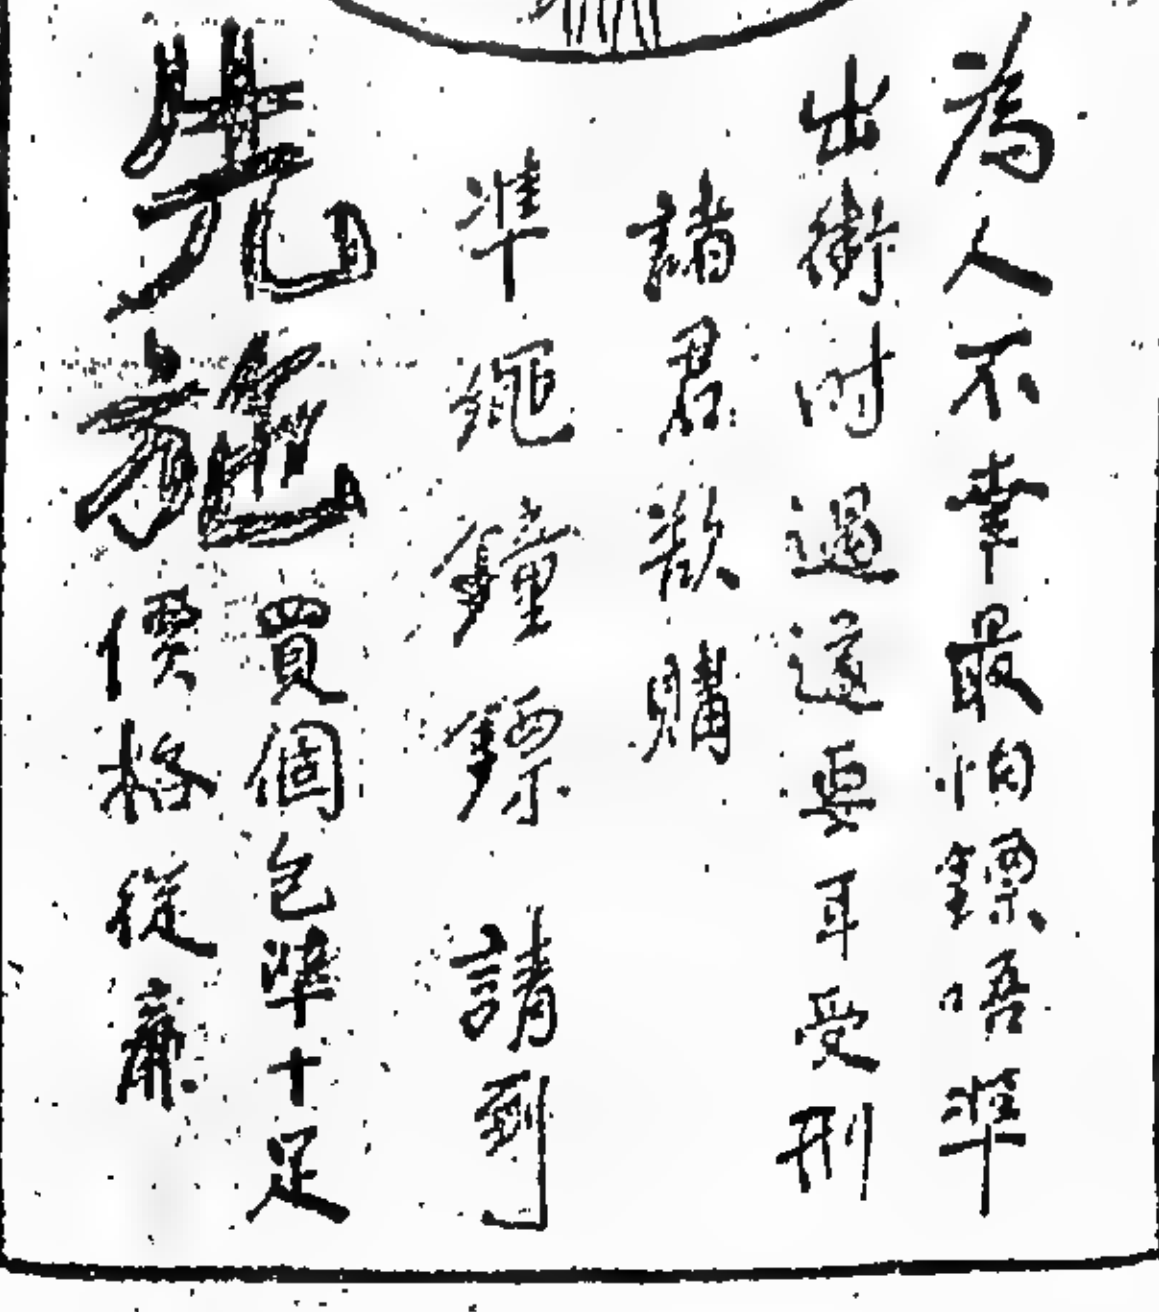 為人不幸最怕鏢唔準
出街时過要耳受刑
諸君欲購
準繩鐘鏢 請到
先施
買個包準十足
價格從廉